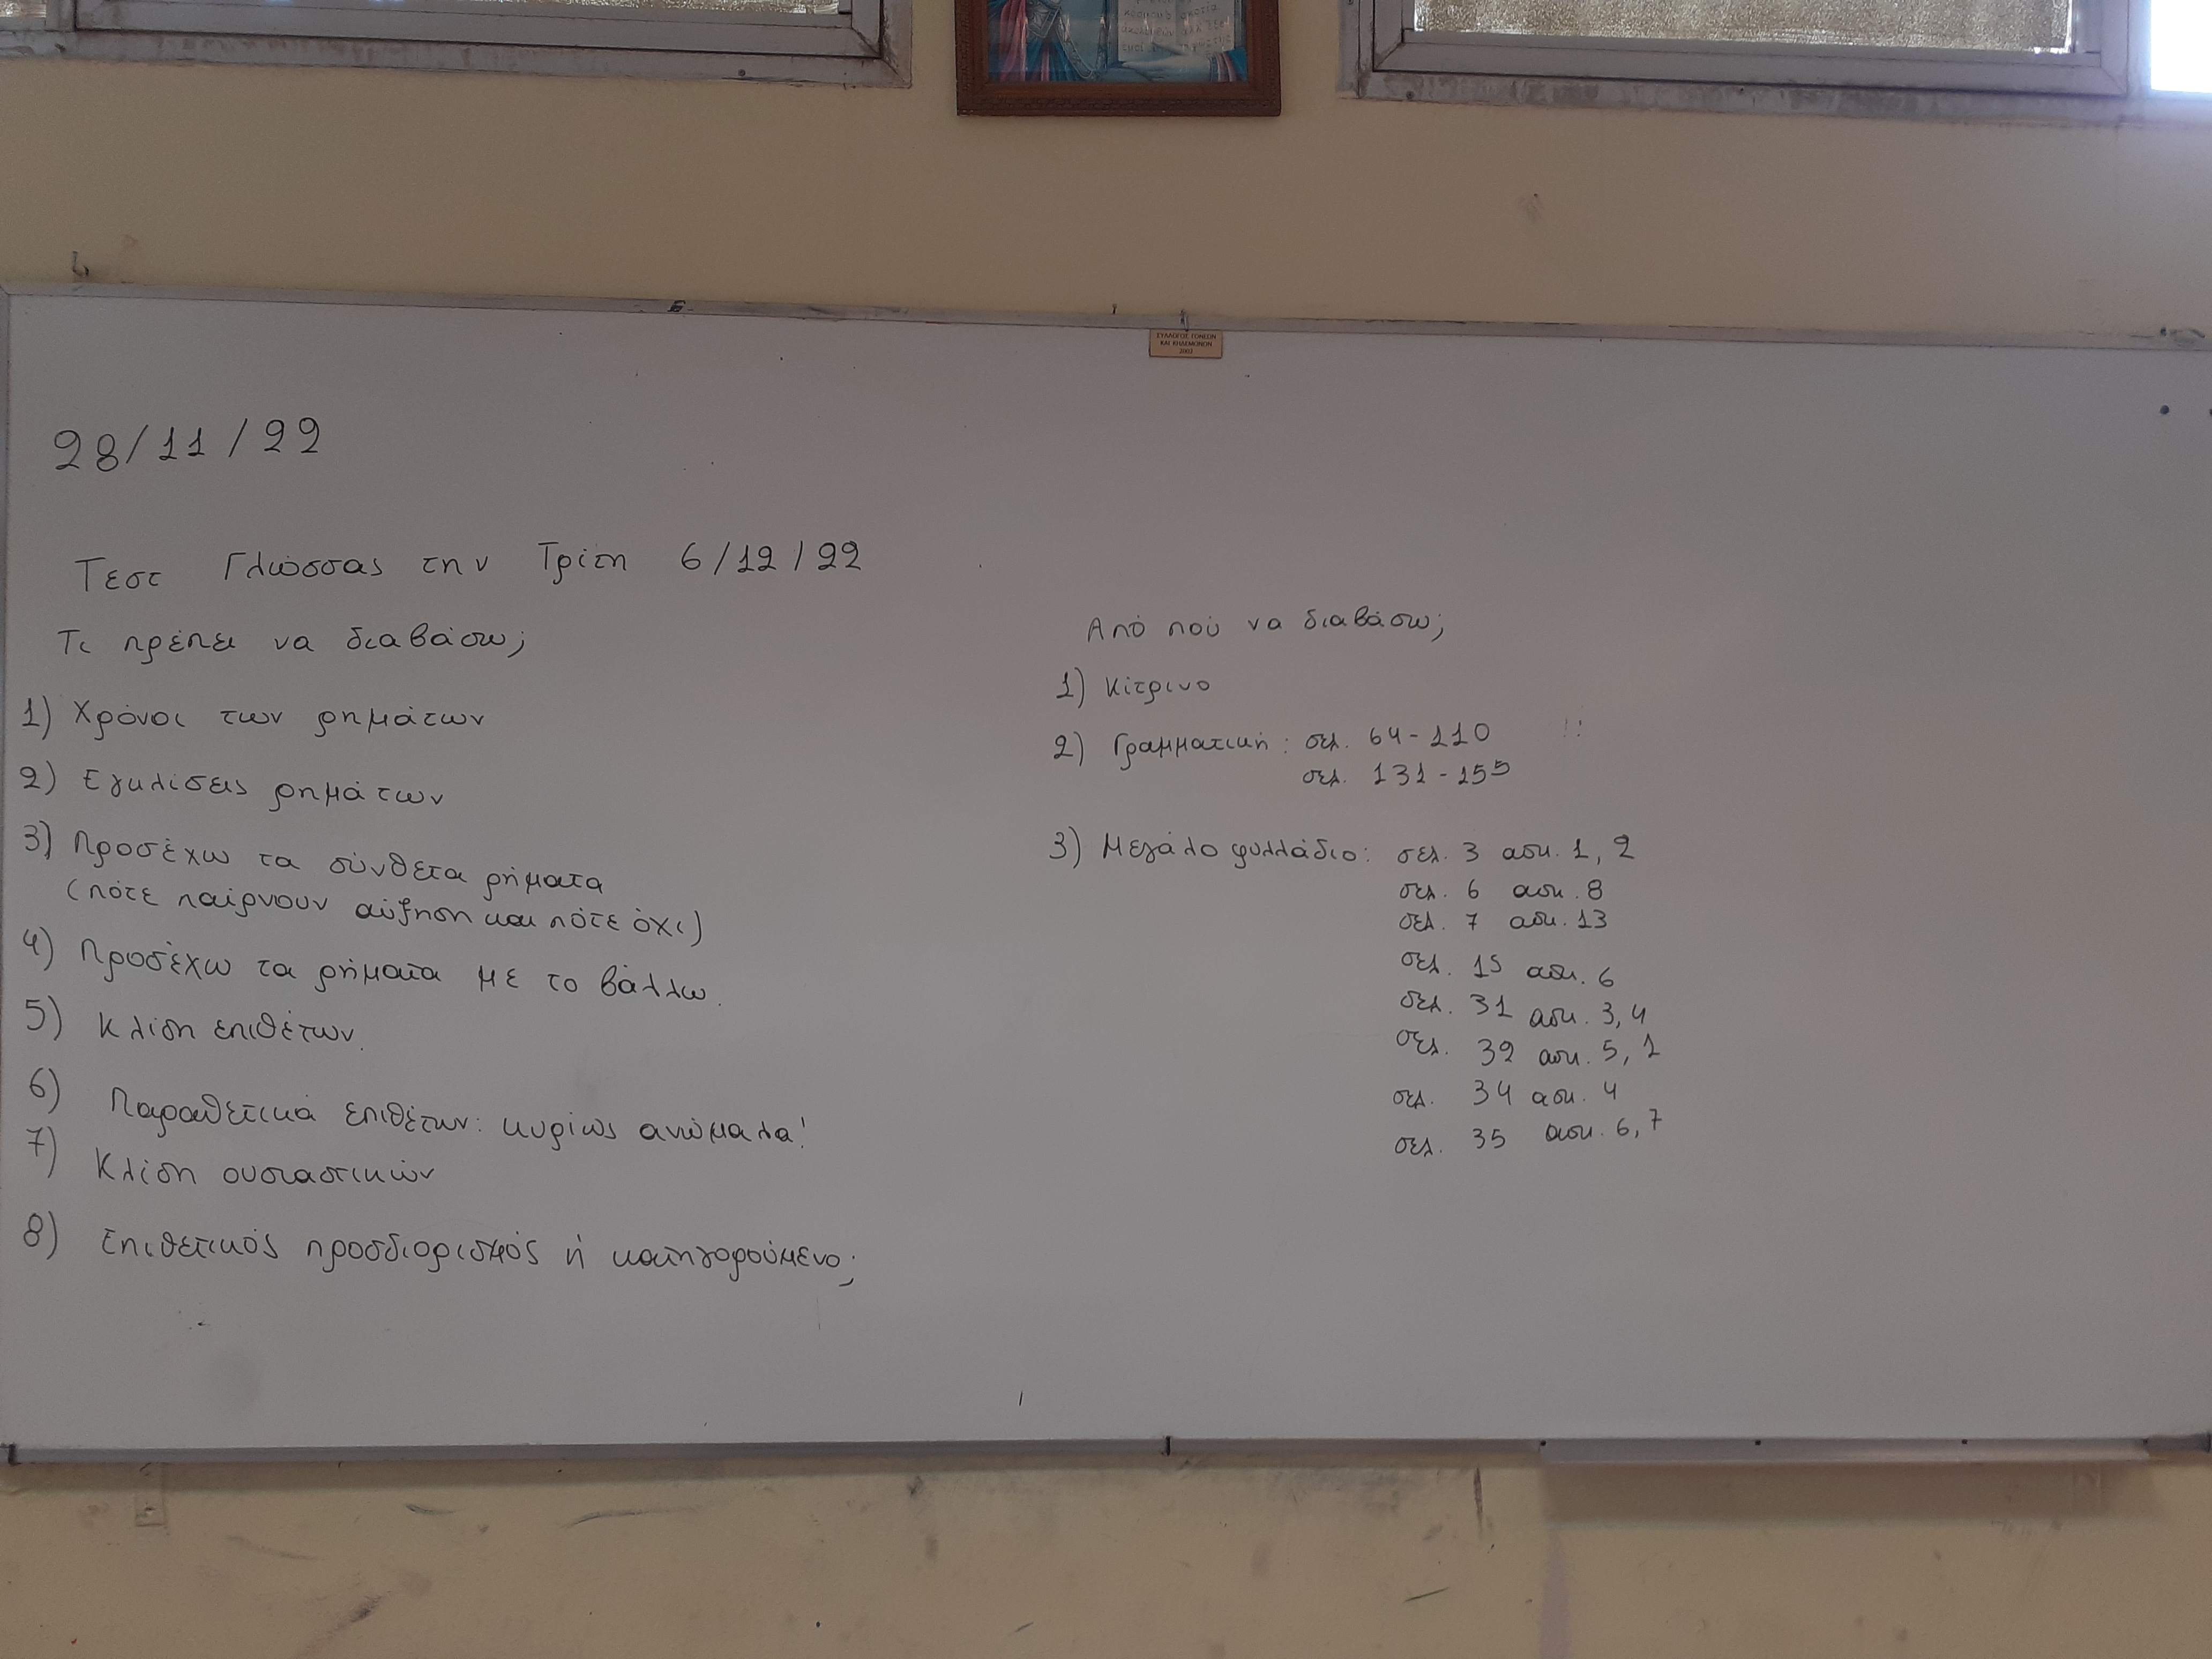 ΣΥΛΛΟΓΟΣ ΓΟΝΕΩΝ
ΚΑΙ ΚΗΔΕΜΟΝΩΝ
2002
28/11/22
Τεστ Γλώσσας την Τρίτη 6/12/22
Τι πρέπει να διαβάσω;
1) Χρόνοι των ρημάτων
2) Εγκλίσεις ρημάτων
3) Προσέχω τα σύνθετα ρήματα
(πότε παίρνουν αύξηση και πότε όχι)
4) Προσέχω τα ρήματα με το βάλλω.
5) Κλίση επιθέτων.
6) Παραθετικά επιθέτων: κυρίως ανώμαλα!
7) Κλίση ουσιαστικών
8) Επιθετικός προσδιορισμός ή κατηγορούμενο;
Από πού να διαβάσω;
1) Κίτρινο
2) Γραμματική: σελ. 64-110 !!
σελ. 131-155
3) Μεγάλο φυλλάδιο: σελ. 3 ασκ. 1, 2
σελ. 6 ασκ. 8
σελ. 7 ασκ. 13
σελ. 15 ασκ. 6
σελ. 31 ασκ. 3, 4
σελ. 32 ασκ. 5, 1
σελ. 34 ασκ. 4
σελ. 35 ασκ. 6, 7